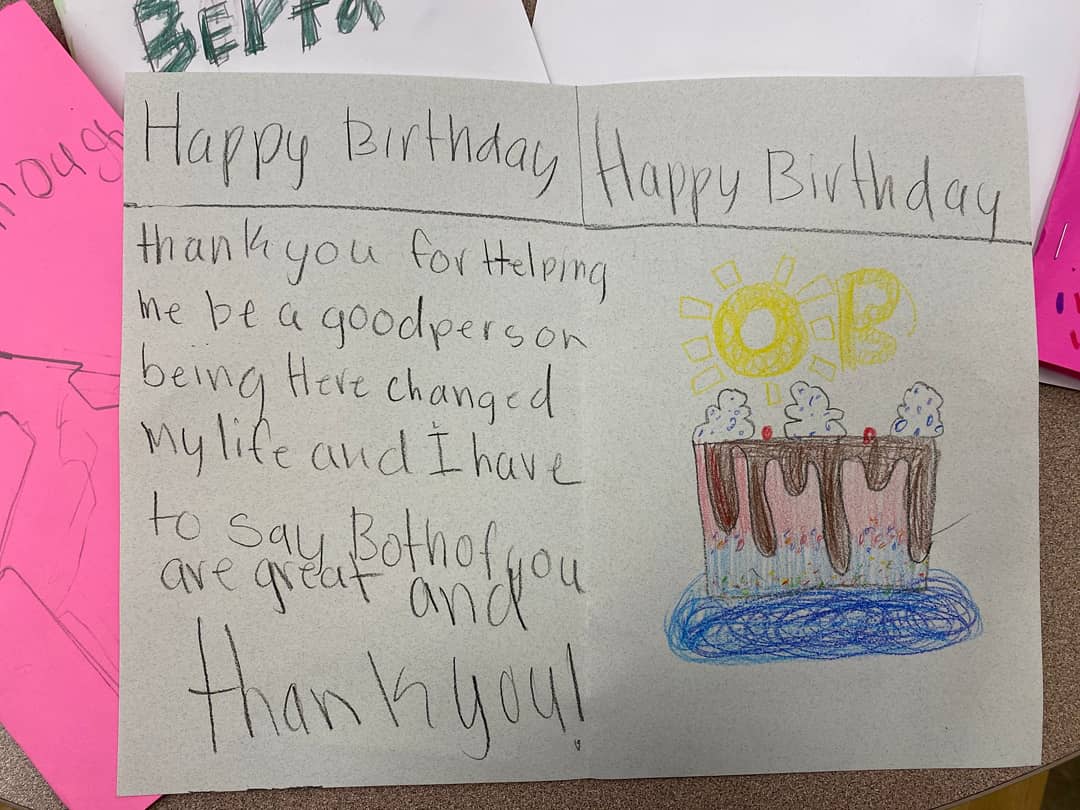 BEPPA
rough
Happy Birthday
thank you for Helping
me be a good person
being Here changed
My life and I have
to say Both of you
are great and
thank you!
Happy Birthday
OB